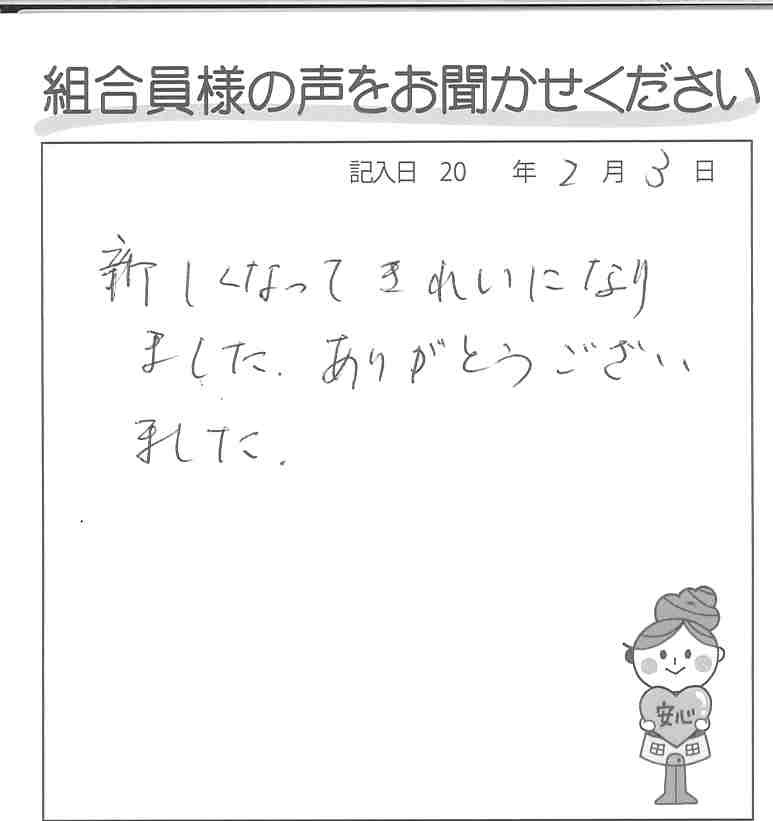 組合員様の声をお聞かせください
記入日 20 年 2 月 3 日
新しくなってきれいになり
ました. ありがとうござい
ました.
安心